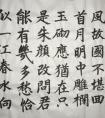 風故國不堪回
首月明中雕欄
玉砌應猶在只
是朱顏改問君
能有幾多愁恰
似一江春水向